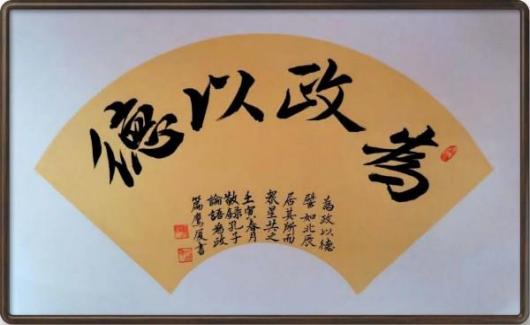 為政以德
為政以德
譬如北辰
居其所而
衆星共之
壬寅春月
敬録孔子
論語為政
篇鹰厦書